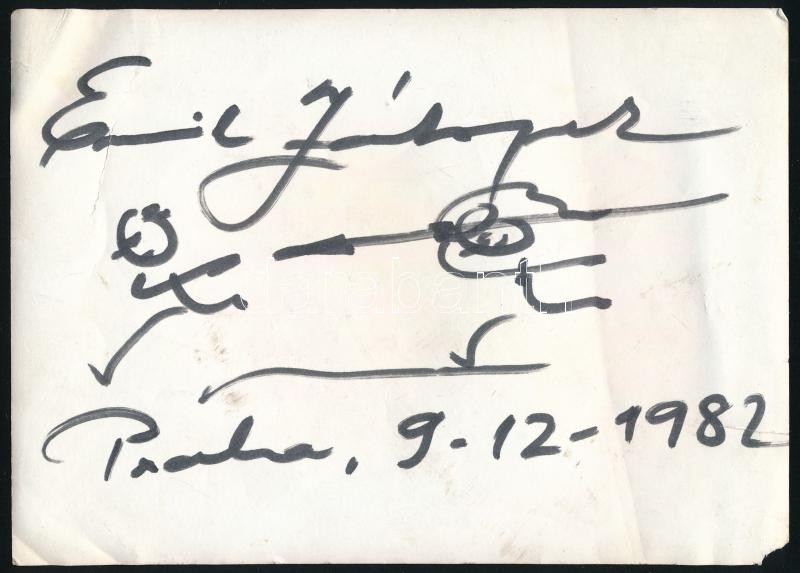 Emil Zátopek
Praha, 9-12-1982